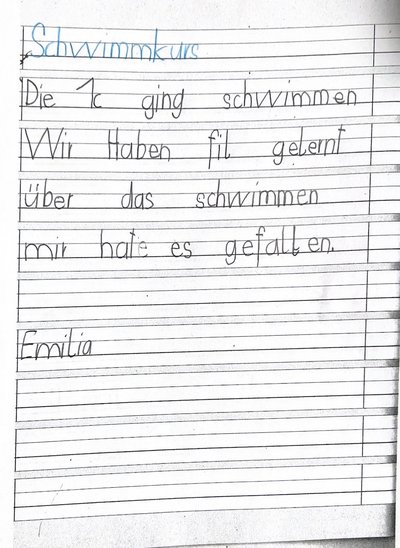 Schwimmkurs
Die 1c ging schwimmen
Wir Haben fil gelernt
über das schwimmen
mir hate es gefallen.
Emilia